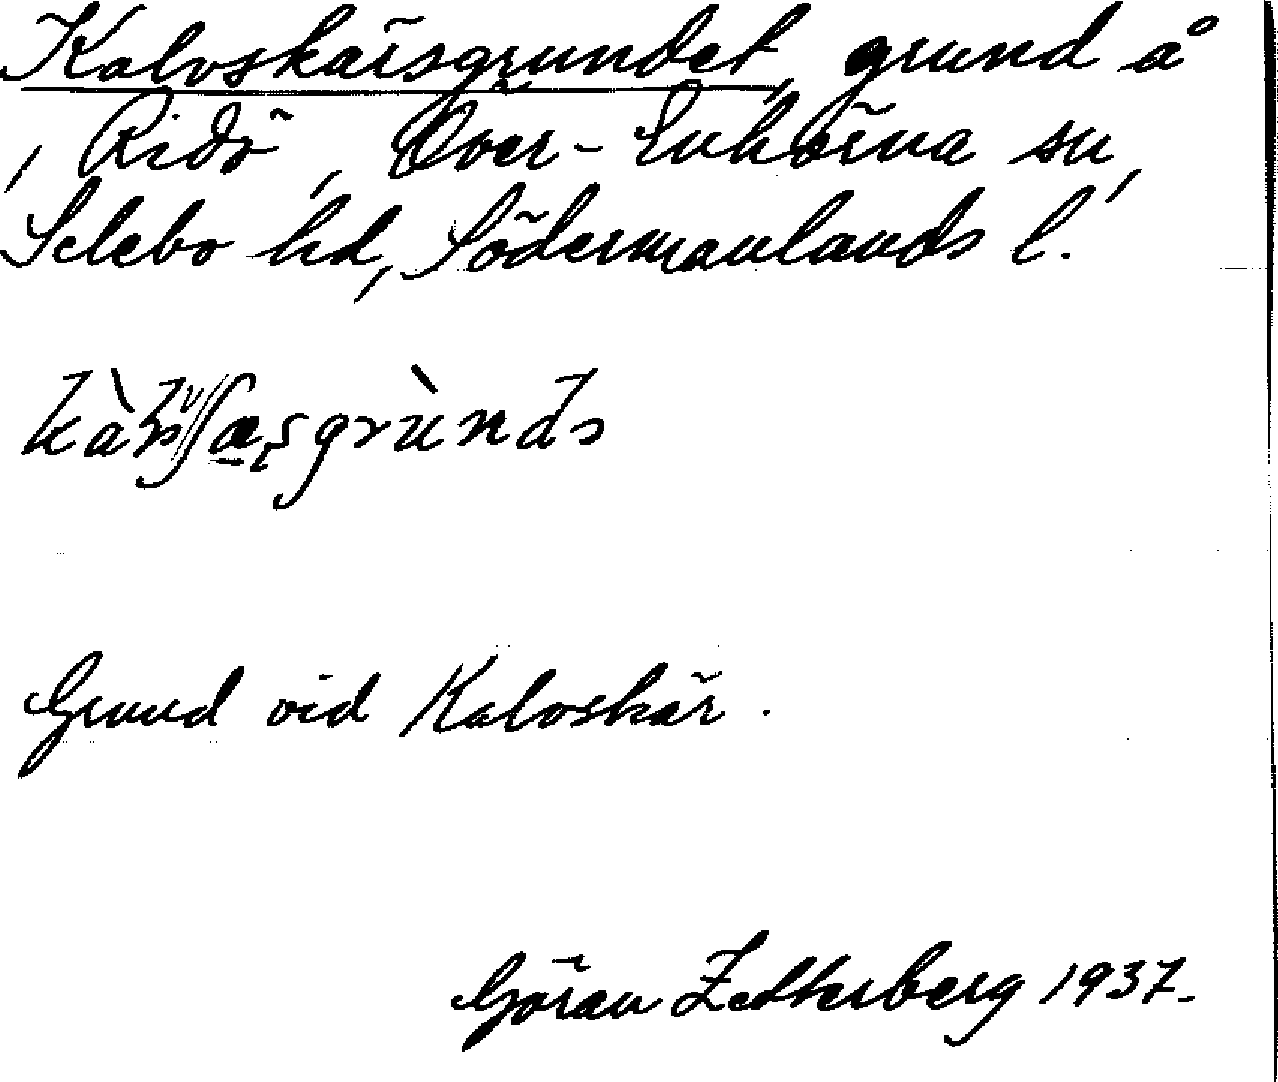 Kalvskärsgrundet, grund å
, Ridö, Över-Enhörna sn,
Selebo hd, Södermanlands l.
Grund vid Kalvskär.
Göran Zetterberg 1937.